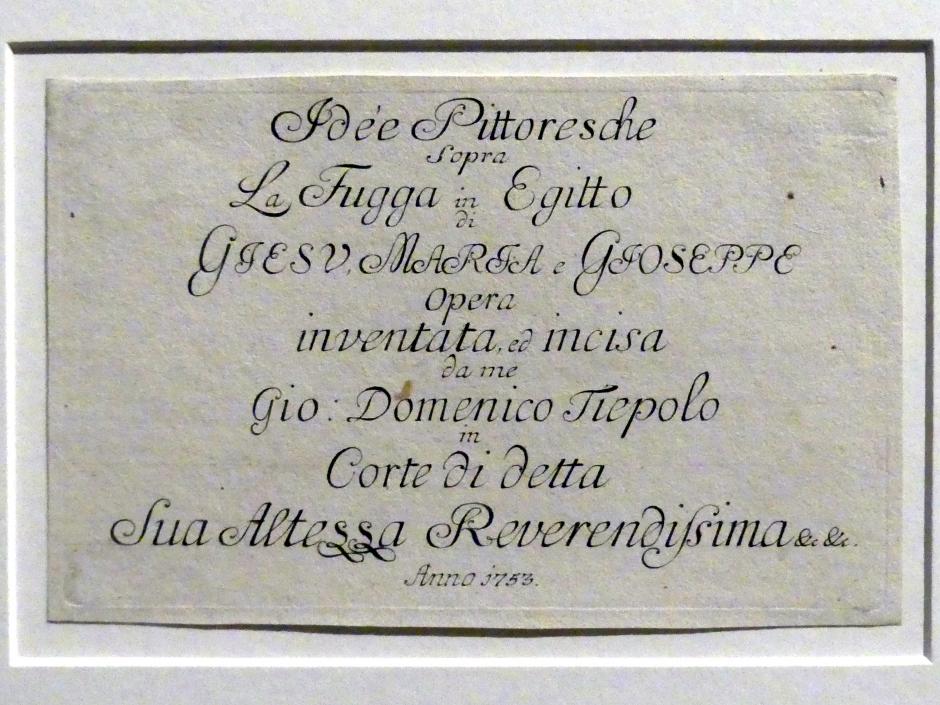 Idée Pittoresche
Sopra
La Fugga in Egitto
di
GIESV, MARIA e GIOSEPPE
Opera
inventata, ed incisa
da me
Gio: Domenico Tiepolo
in
Corte di detta
Sua Altessa Reverendiſsima &c &c.
Anno 1753.